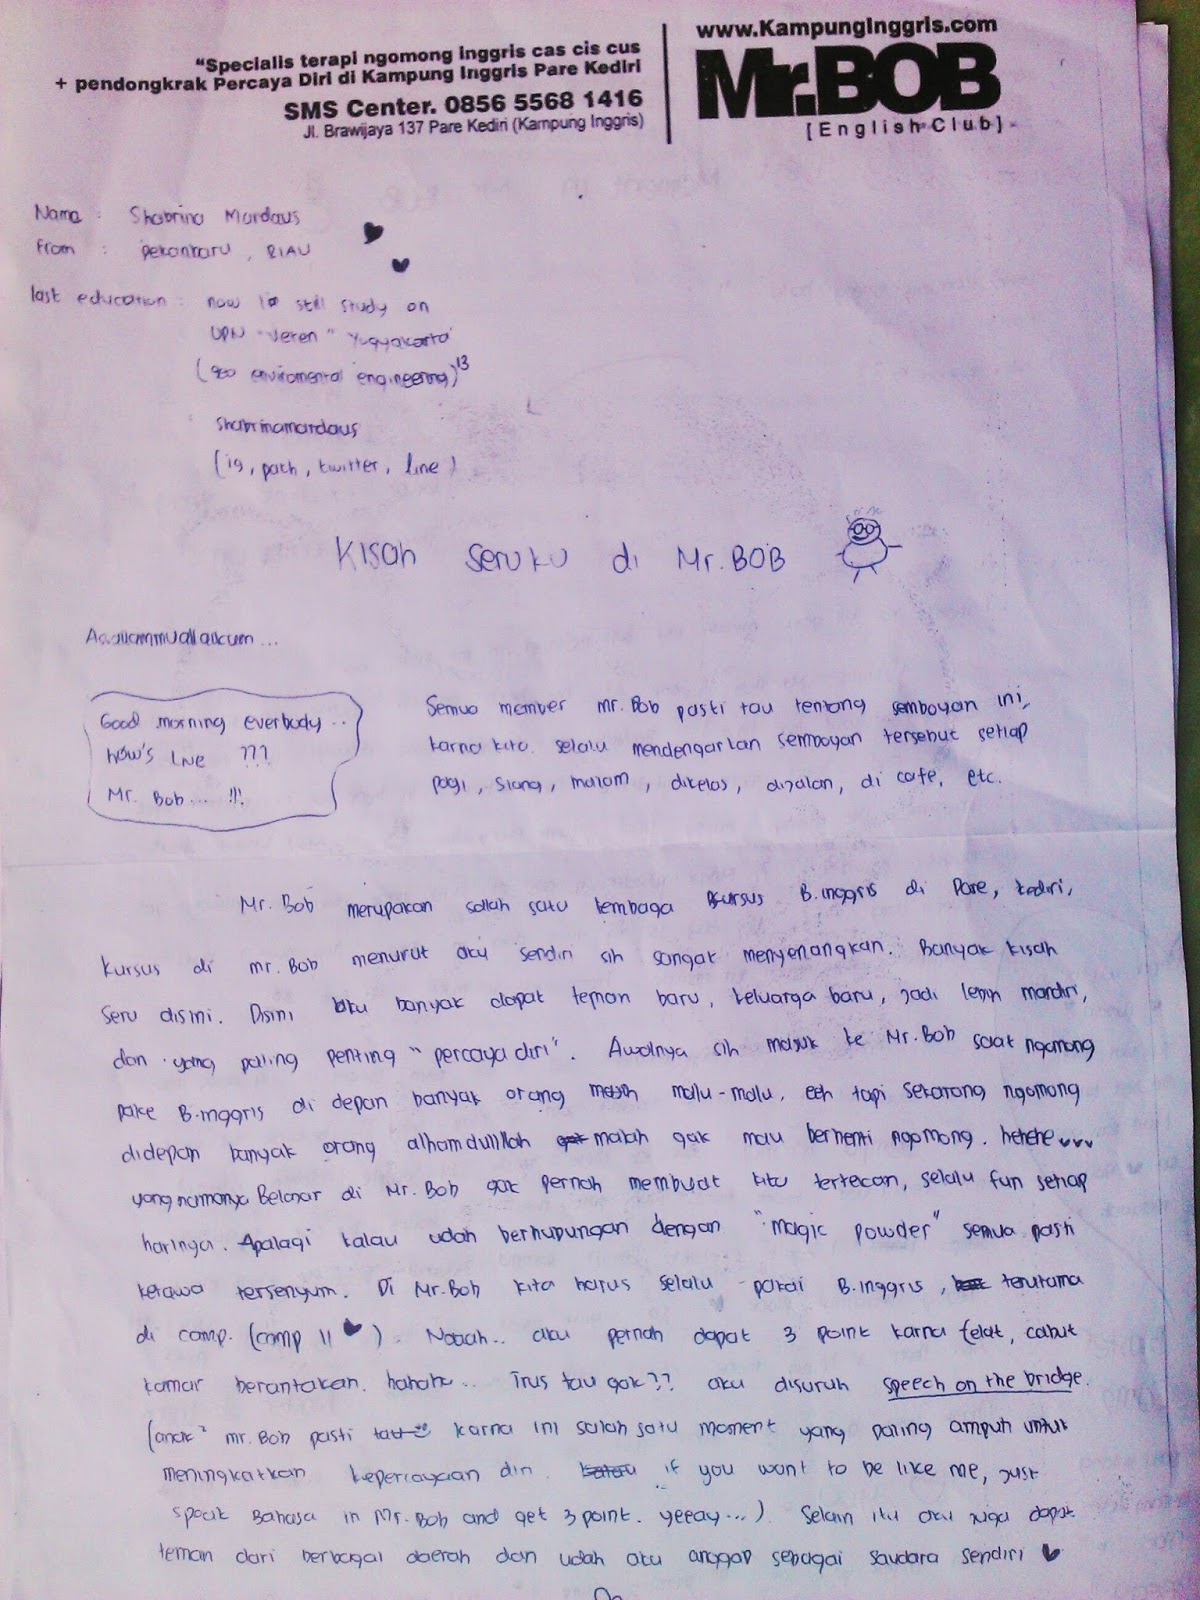 "Specialis terapi ngomong Inggris cas cis cus
+ pendongkrak Percaya Diri di Kampung Inggris Pare Kediri
SMS Center. 0856 5568 1416
Jl. Brawijaya 137 Pare Kediri (Kampung Inggris)
www.KampungInggris.com
Mr.BOB
[English Club]
Name : Shabrina Mardaus
From : Pekanbaru, RIAU
last education : now still study on
UPN "Veteran" Yogyakarta
(geo enviromental engineering)13
shabrinamardaus
(ig, path, twitter, line)
Kisah seruku di Mr. BOB
Assallammuallaikum...
Good morning everbody..
how's live ???
Mr. Bob... !!!
Semua member Mr. Bob pasti tau tentang semboyan ini,
karna kita selalu mendengarkan semboyan tersebut setiap
pagi, siang, malam, dikelas, dijalan, di cafe, etc.
Mr. Bob merupakan sallah satu lembaga kursus B.inggris di Pare, kediri,
kursus di mr. Bob menurut aku sendiri sih sangat menyenangkan. Banyak kisah
seru disini. Disini aku banyak dapat teman baru, keluarga baru, jadi lebih mandiri,
dan yang paling penting "percaya diri". Awalnya sih masuk ke Mr. Bob saat ngomong
pake B.inggris di depan banyak orang masih malu-malu, eeh tapi sekarang ngomong
didepan banyak orang alhamdulillah malah gak mau berhenti ngomong. hehehe
yang namanya Belajar di Mr. Bob gak pernah membuat kita tertekan, selalu fun setiap
harinya. Apalagi kalau udah berhubungan dengan "magic powder" semua pasti
ketawa tersenyum. Di Mr. Bob kita harus selalu pakai B.inggris, terutama
di camp. (camp 11 ). Naaah.. aku pernah dapat 3 point karna telat, cabut
kamar berantakan. hahaha.. Trus tau gak?? aku disuruh speech on the bridge.
(anak² mr. Bob pasti tau karna ini salah satu moment yang paling ampuh untuk
meningkatkan kepercayaan diri. if you want to be like me, just
speak Bahasa in Mr. Bob and get 3 point. yeeay...). Selain itu aku juga dapat
teman dari berbagai daerah dan udah aku anggap sebagai saudara sendiri